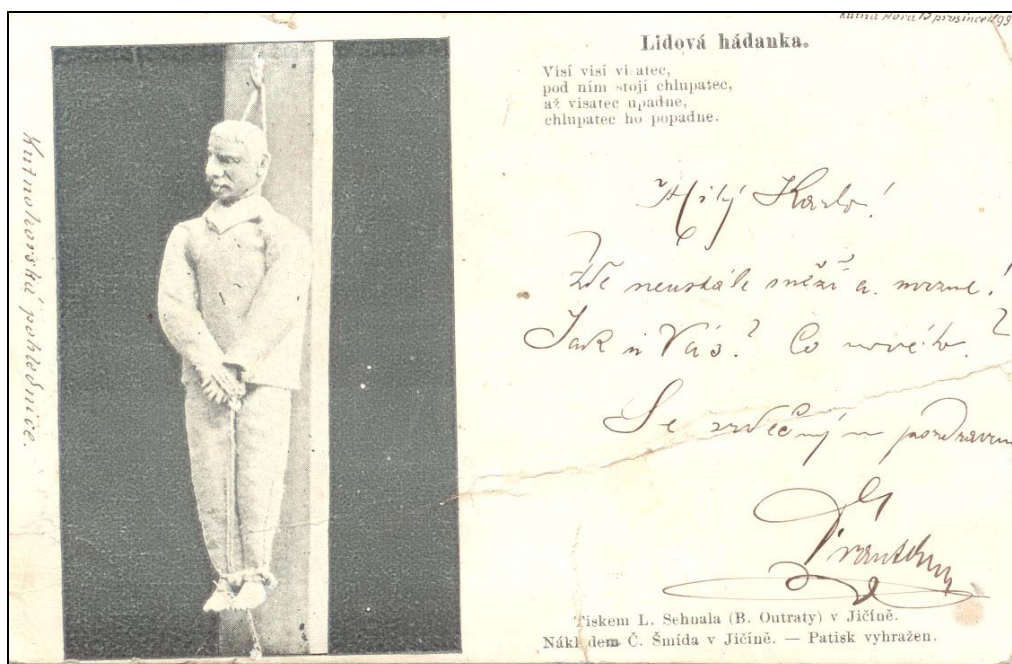 Kutná Hora 13 prosince 1899
Lidová hádanka.
Visí visí visatec,
pod ním stojí chlupatec,
až visatec upadne,
chlupatec ho popadne.
Milý Karlo!
Zde neustále sněží a mrzne!
Jak u Vás? Co nového?
Se srdečným pozdravem
Kutnohorská pohlednice.
Tiskem L. Sehnala (B. Outraty) v Jičíně.
Nákladem Č. Šmída v Jičíně. — Patisk vyhražen.